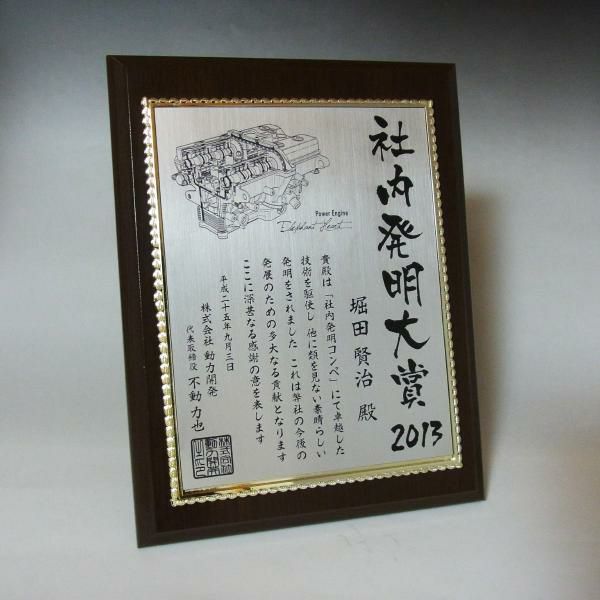 社内発明大賞
2013
Power Engine
Elephant Heart
堀田 賢治 殿
貴殿は「社内発明コンペ」にて卓越した
技術を駆使し 他に類を見ない素晴らしい
発明をされました これは弊社の今後の
発展のための多大なる貢献となります
ここに深甚なる感謝の意を表します
平成二十五年九月三日
株式会社 動力開発
代表取締役 不動 力也